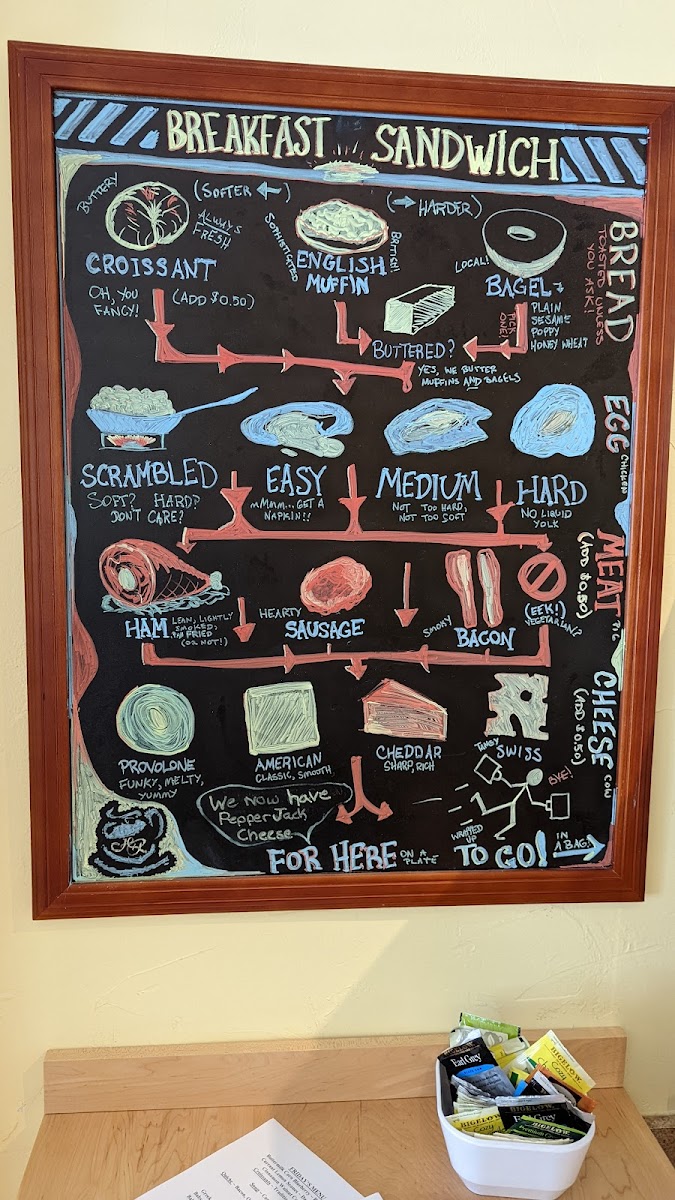 BREAKFAST SANDWICH
BUTTERY
(SOFTER ←)
ALWAYS
FRESH
CROISSANT
OH, YOU
FANCY!
(ADD $0.50)
SOPHISTICATED
BRITISH
ENGLISH
MUFFIN
(→ HARDER)
LOCAL!
BAGEL
PICK
ONE!
PLAIN
SESAME
POPPY
HONEY WHEAT
BREAD
TOASTED UNLESS
YOU ASK!
BUTTERED?
YES, WE BUTTER
MUFFINS AND BAGELS
EGG
CHICKEN
SCRAMBLED
SOFT? HARD?
DON'T CARE?
EASY
MMMM...GET A
NAPKIN!!
MEDIUM
NOT TOO HARD,
NOT TOO SOFT
HARD
NO LIQUID
YOLK
MEAT
PIG
(ADD $0.50)
HAM
LEAN, LIGHTLY
SMOKED,
PAN FRIED
(OR NOT!)
HEARTY
SAUSAGE
SMOKY
BACON
(EEK!)
VEGETARIAN?
CHEESE
COW
(ADD $0.50)
PROVOLONE
FUNKY, MELTY,
YUMMY
AMERICAN
CLASSIC, SMOOTH
CHEDDAR
SHARP, RICH
TANGY
SWISS
We now have
Pepper Jack
Cheese
BYE!
FOR HERE
ON A
PLATE
WRAPPED
UP
TO GO!
IN
A BAG!
Earl Grey
BIGELOW
Cozy
BIGELOW
Cozy
Earl Grey
BIGELOW
FRIDAY'S MENU